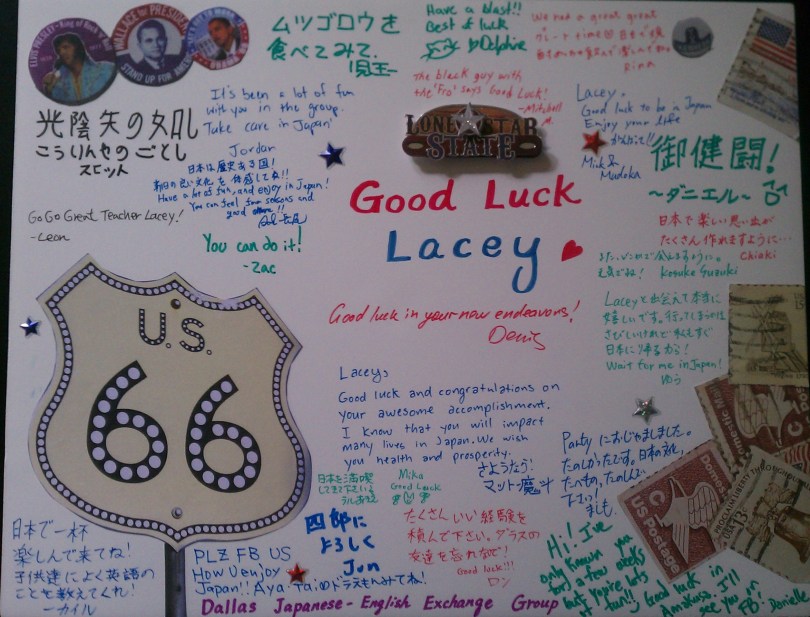 ELVIS PRESLEY - King of Rock 'n' Roll
WALLACE for PRESIDENT
STAND UP FOR AMERICA
ムツゴロウを
食べてみて.
Have a blast!!
Best of luck
Delphine
The black guy with
the 'Fro' says Good Luck!
-Mitchell
It's been a lot of fun
with you in the group.
Take care in Japan
Jordan
光陰矢の如し
こういんやのごとし
スピット
日本は歴史ある国!
Have a lot of fun, and enjoy in Japan!
You can feel four seasons and
good
Go Go Great Teacher Lacey!
-Leon
You can do it!
-Zac
LONE STAR
STATE
Good Luck
Lacey
Lacey.
Good luck to be in Japan
Enjoy your life
Mick &
Madoka
御健闘!
~ダニエル~
日本で楽しい思い出が
たくさん作れますように…
Chiaki
Kosuke Suzuki
Good luck in your new endeavors!
Denis
Laceyと出会えて本当に
嬉しいです。行ってしまうのは
さびしいけれど私もすぐ
日本に帰るから!
Wait for me in Japan!
ゆう
U.S.
66
Lacey,
Good luck and congratulations on
your awesome accomplishment.
I know that you will impact
many lives in Japan. We wish
you health and prosperity.
さようなら!
マット・魔斗
日本を満喫
してきて下さい
Mika
Good Luck
Partyにおじゃましました。
たのしかったです。日本の文化、
たべもの、たのしんで
下さい!
四郎に
よろしく
Jun
たくさんいい経験を
積んで下さい。ダラスの
友達を忘れないで!
Good luck!!!
ロン
日本で一杯
楽しんで来てね!
子供達によく英語の
ことを教えてくれ!
-カイル
PLZ FB US
How U enjoy
Japan!! Aya・Taiのドラえもんみてね!
Hi! I've
only known you
for a few weeks
but you're lots
of fun!! Good luck in
Amakusa. I'll
see you on
FB! Danielle
US Postage
Domestic Mail
USA 13c
Dallas Japanese-English Exchange Group